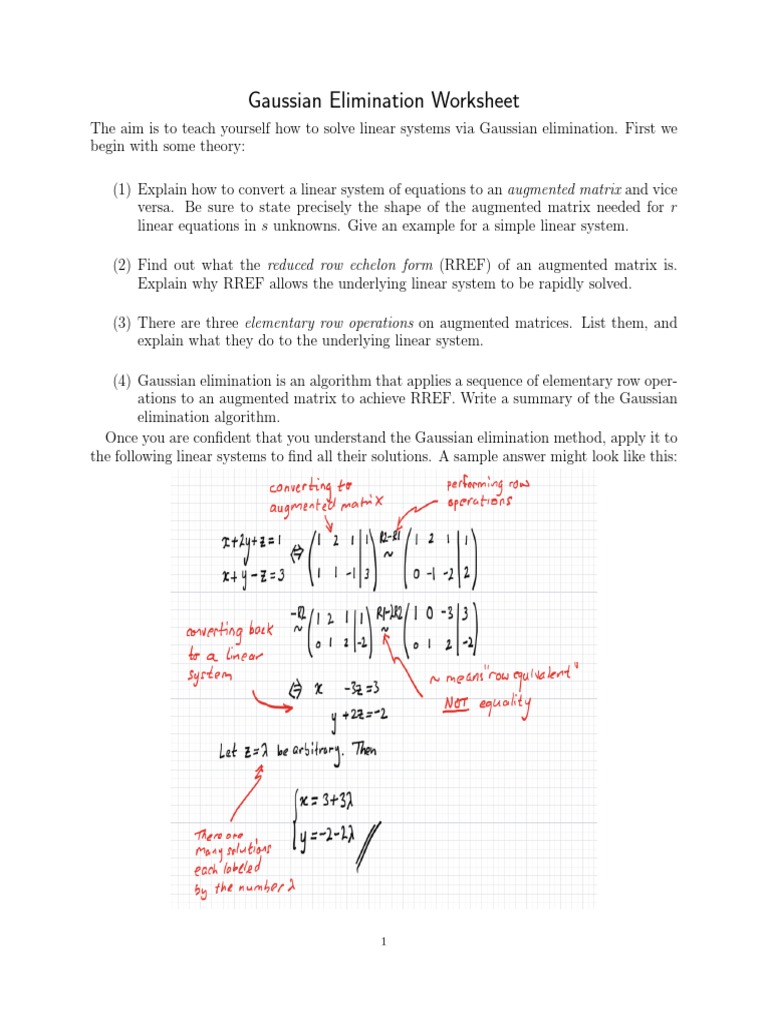 Gaussian Elimination Worksheet
The aim is to teach yourself how to solve linear systems via Gaussian elimination. First we
begin with some theory:
(1) Explain how to convert a linear system of equations to an augmented matrix and vice
versa. Be sure to state precisely the shape of the augmented matrix needed for r
linear equations in s unknowns. Give an example for a simple linear system.
(2) Find out what the reduced row echelon form (RREF) of an augmented matrix is.
Explain why RREF allows the underlying linear system to be rapidly solved.
(3) There are three elementary row operations on augmented matrices. List them, and
explain what they do to the underlying linear system.
(4) Gaussian elimination is an algorithm that applies a sequence of elementary row oper-
ations to an augmented matrix to achieve RREF. Write a summary of the Gaussian
elimination algorithm.
Once you are confident that you understand the Gaussian elimination method, apply it to
the following linear systems to find all their solutions. A sample answer might look like this:
converting to
augmented matrix
performing row
operations
x+2y+z=1 ⇔ ( 1 2 1 | 1 ) R2-R1 ~ ( 1 2 1 | 1 )
x+y-z=3 ( 1 1 -1 | 3 ) ( 0 -1 -2 | 2 )
-R2 ~ ( 1 2 1 | 1 ) R1-2R2 ~ ( 1 0 -3 | 3 )
( 0 1 2 | -2 ) ( 0 1 2 | -2 )
converting back
to a linear
system
~ means "row equivalent"
NOT equality
⇔ x -3z=3
y+2z=-2
Let z=λ be arbitrary. Then
{ x=3+3λ
y=-2-2λ //
There are
many solutions
each labeled
by the number λ
1